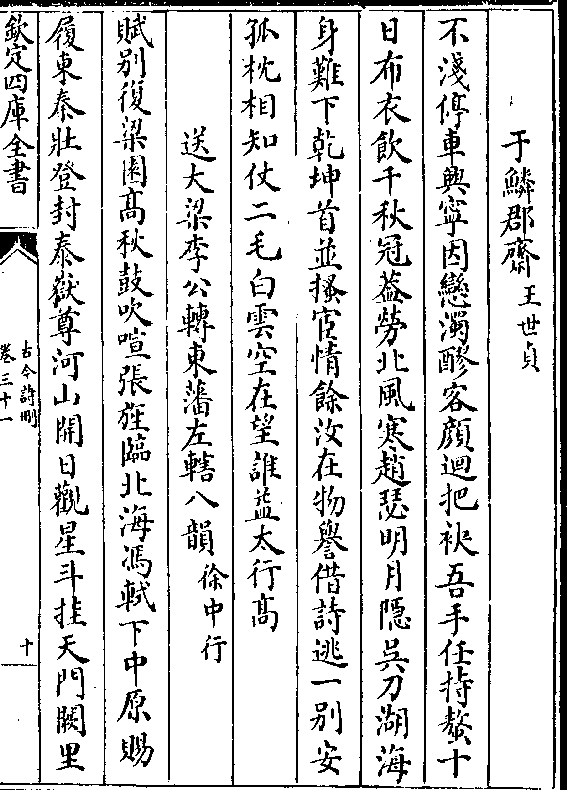 于鱗郡齋 王世貞
不淺停車興寧因戀濁醪客顔迴把袂吾手任持螯十
日布衣飲千秋冠葢勞北風寒趙瑟明月隠呉刀湖海
身難下乾坤首並搔宦情餘汝在物譽借詩逃一别安
孤枕相知仗二毛白雲空在望誰益太行髙
送大梁李公轉東藩左轄八韻 徐中行
賦别復梁園髙秋鼓吹喧張旌臨北海馮軾下中原賜
履東秦壯登封泰嶽尊河山開日觀星斗挂天門闕里
欽定四庫全書
古今詩刪
卷三十一
十